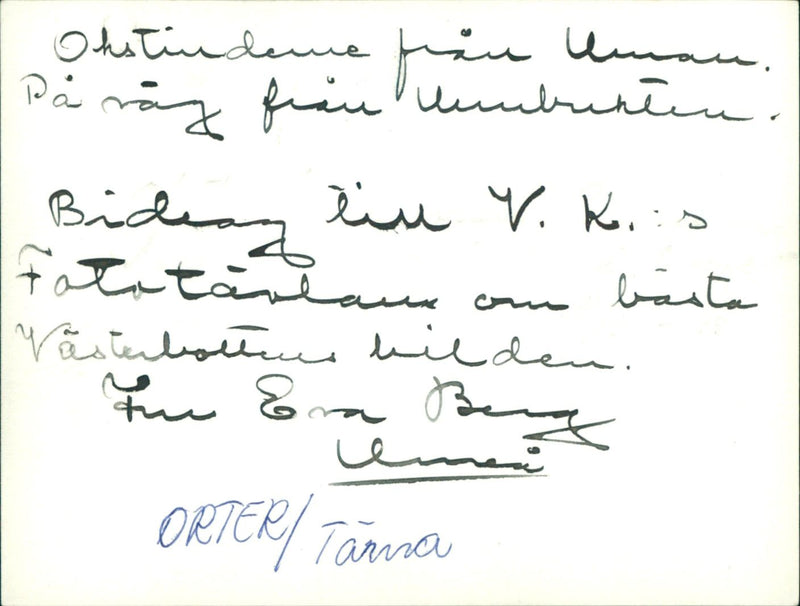 Okstinderne från Uman.
På väg från Umbukten.
Bidrag till V. K.:s
Fototävlan om bästa
Västerbottens bilden.
Fru Eva Berg
Umeå
ORTER/Tärna